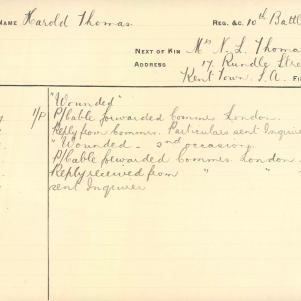 NAME Harold Thomas REG. &C. 10th Batt
NEXT OF KIN Mrs N. L. Thoma
ADDRESS 17, Rundle Stre
Kent Town. S.A.
"Wounded"
1/P P/Cable forwarded Commis. London.
Reply from Commis. Particulars sent Inquir
"Wounded – 2nd occasion,
P/Cable forwarded Commis. London
Reply received from " "
sent Inquirer